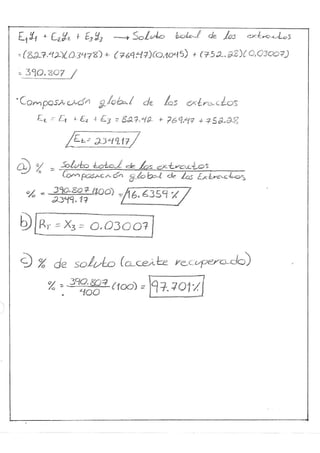 E₁y₁ + E₂y₂ + E₃y₃ → Soluto total de los extractos
=(827.42)(0.3478) + (769.47)(0.1045) + (752.28)(0.03007)
= 390.807 /
·Composición global de los extractos
Eₜ = E₁ + E₂ + E₃ = 827.42 + 769.47 + 752.28
Eₜ = 2349.17
a) % = Soluto total de los extractos
Composición global de los Extractos
% = 390.807 (100) = 16.6359 %
2349.17
b) Rₜ = X₃ = 0.03007
c) % de soluto (aceite recuperado)
% = 390.807 (100) = 97.701%
400